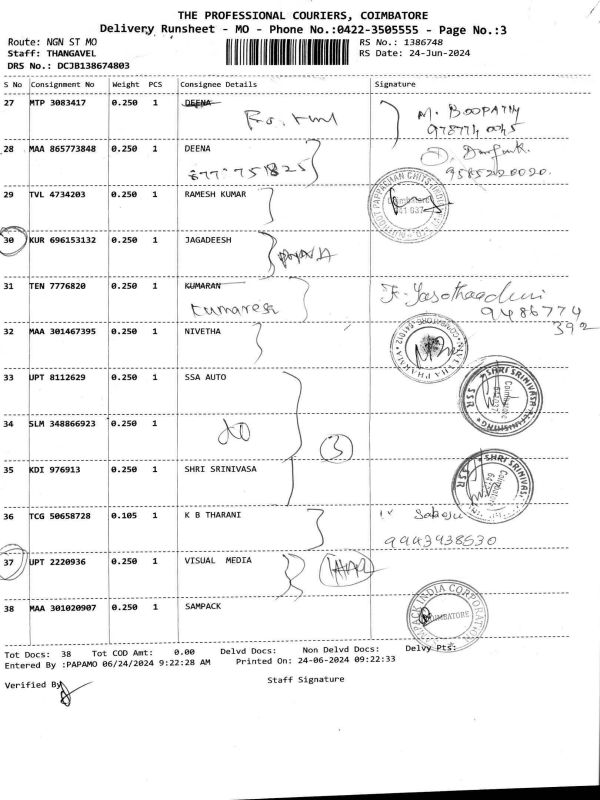 THE PROFESSIONAL COURIERS, COIMBATORE
Delivery Runsheet - MO - Phone No.:0422-3505555 - Page No.:3
Route: NGN ST MO
RS No.: 1386748
Staff: THANGAVEL
RS Date: 24-Jun-2024
DRS No.: DCJB138674803
S No Consignment No Weight PCS Consignee Details Signature
27 MTP 3083417 0.250 1 DEENA
M. BOOPATHY
28 MAA 865773848 0.250 1 DEENA
9585220020.
29 TVL 4734203 0.250 1 RAMESH KUMAR
30 KUR 696153132 0.250 1 JAGADEESH
31 TEN 7776820 0.250 1 KUMARAN
Kumaresh
9486774
392
32 MAA 301467395 0.250 1 NIVETHA
33 UPT 8112629 0.250 1 SSA AUTO
SHRI SRINIVASA
Coimbatore
SSR
34 SLM 348866923 0.250 1
3
35 KDI 976913 0.250 1 SHRI SRINIVASA
SHRI SRINIVAS
SSR
36 TCG 50658728 0.105 1 K B THARANI
9943938630
37 UPT 2220936 0.250 1 VISUAL MEDIA
38 MAA 301020907 0.250 1 SAMPACK
INDIA CORPORATION
COIMBATORE
Tot Docs: 38 Tot COD Amt: 0.00 Delvd Docs: Non Delvd Docs: Delvy Pts:
Entered By :PAPAMO 06/24/2024 9:22:28 AM Printed On: 24-06-2024 09:22:33
Staff Signature
Verified By